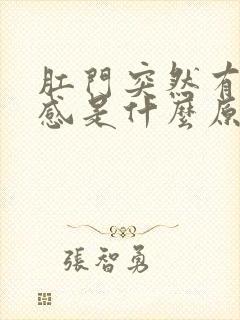 肛門突然有
感是什麼原
張智勇